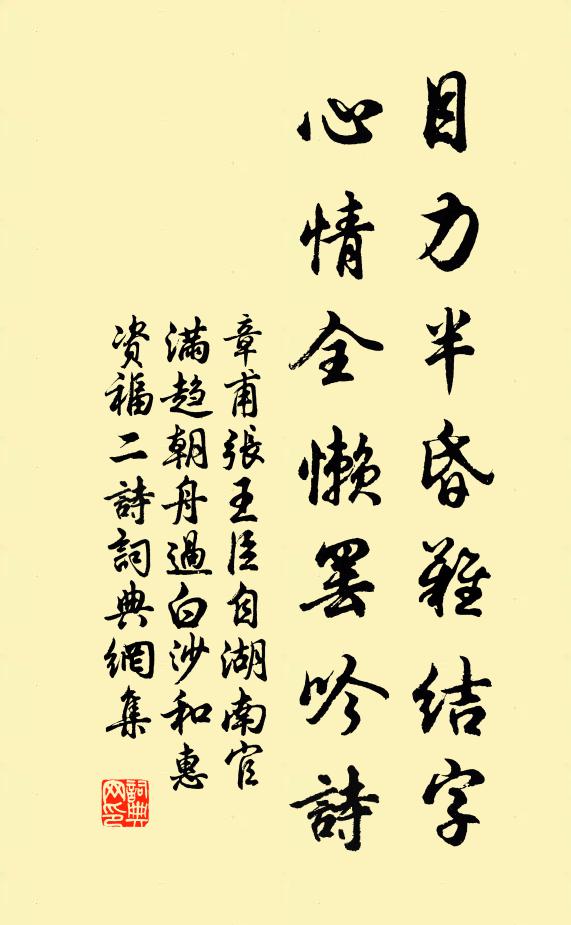 目力半昏難結字
心情全懶罷吟詩
章甫張王臣自湖南官
滿趋朝舟過白沙和惠
资福二詩詞典網集
詞典
网印